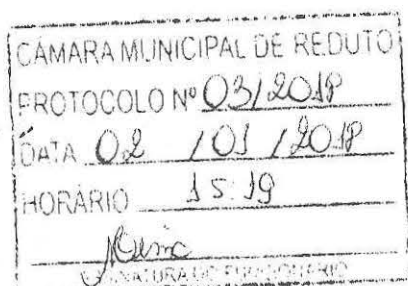 CÂMARA MUNICIPAL DE REDUTO
PROTOCOLO Nº 03/2018
DATA 02 / 01 / 2018
HORÁRIO 15:19
ASSINATURA DO FUNCIONÁRIO